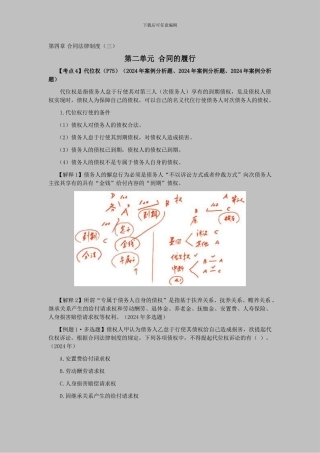 下载后可任意编辑
第四章 合同法律制度（三）
第二单元 合同的履行
【考点 4】代位权（P75）（2024 年案例分析题、2024 年案例分析题、2024 年案例分析题）
代位权是指债务人怠于行使其对第三人（次债务人）享有的到期债权，危及债权人债权实现时，
1.代位权行使的条件
（1）债权人对债务人的债权合法。
（2）债务人怠于行使其到期债权，对债权人造成损害。
（3）债务人的债权已到期，债权人的债权已到期。
（4）债务人的债权不是专属于债务人自身的债权。
【解释 1】债务人的懈怠行为必须是债务人“不以诉讼方式或者仲裁方式”向次债务人主张其享有的具有“金钱”给付内容的“到期”债权。
100
A
B
权
到期
金钱
合法
A
C
【解释 2】所谓“专属于债务人自身的债权”是指基于扶养关系、抚养关系、赡养关系、继承关系产生的给付请求权和劳动酬劳、退休金、养老金、抚恤金、安置费、人寿保险、人身损害赔偿请求权等权利。（2024 年多选题）
【例题 1·多选题】债权人甲认为债务人乙怠于行使其债权给自己造成损害，欲提起代位权诉讼。根据合同法律制度的规定，下列各项债权中，不得提起代位权诉讼的有（ ）。（2024 年）
A.安置费给付请求权
B.劳动酬劳请求权
C.人身损害赔偿请求权
D.因继承关系产生的给付请求权